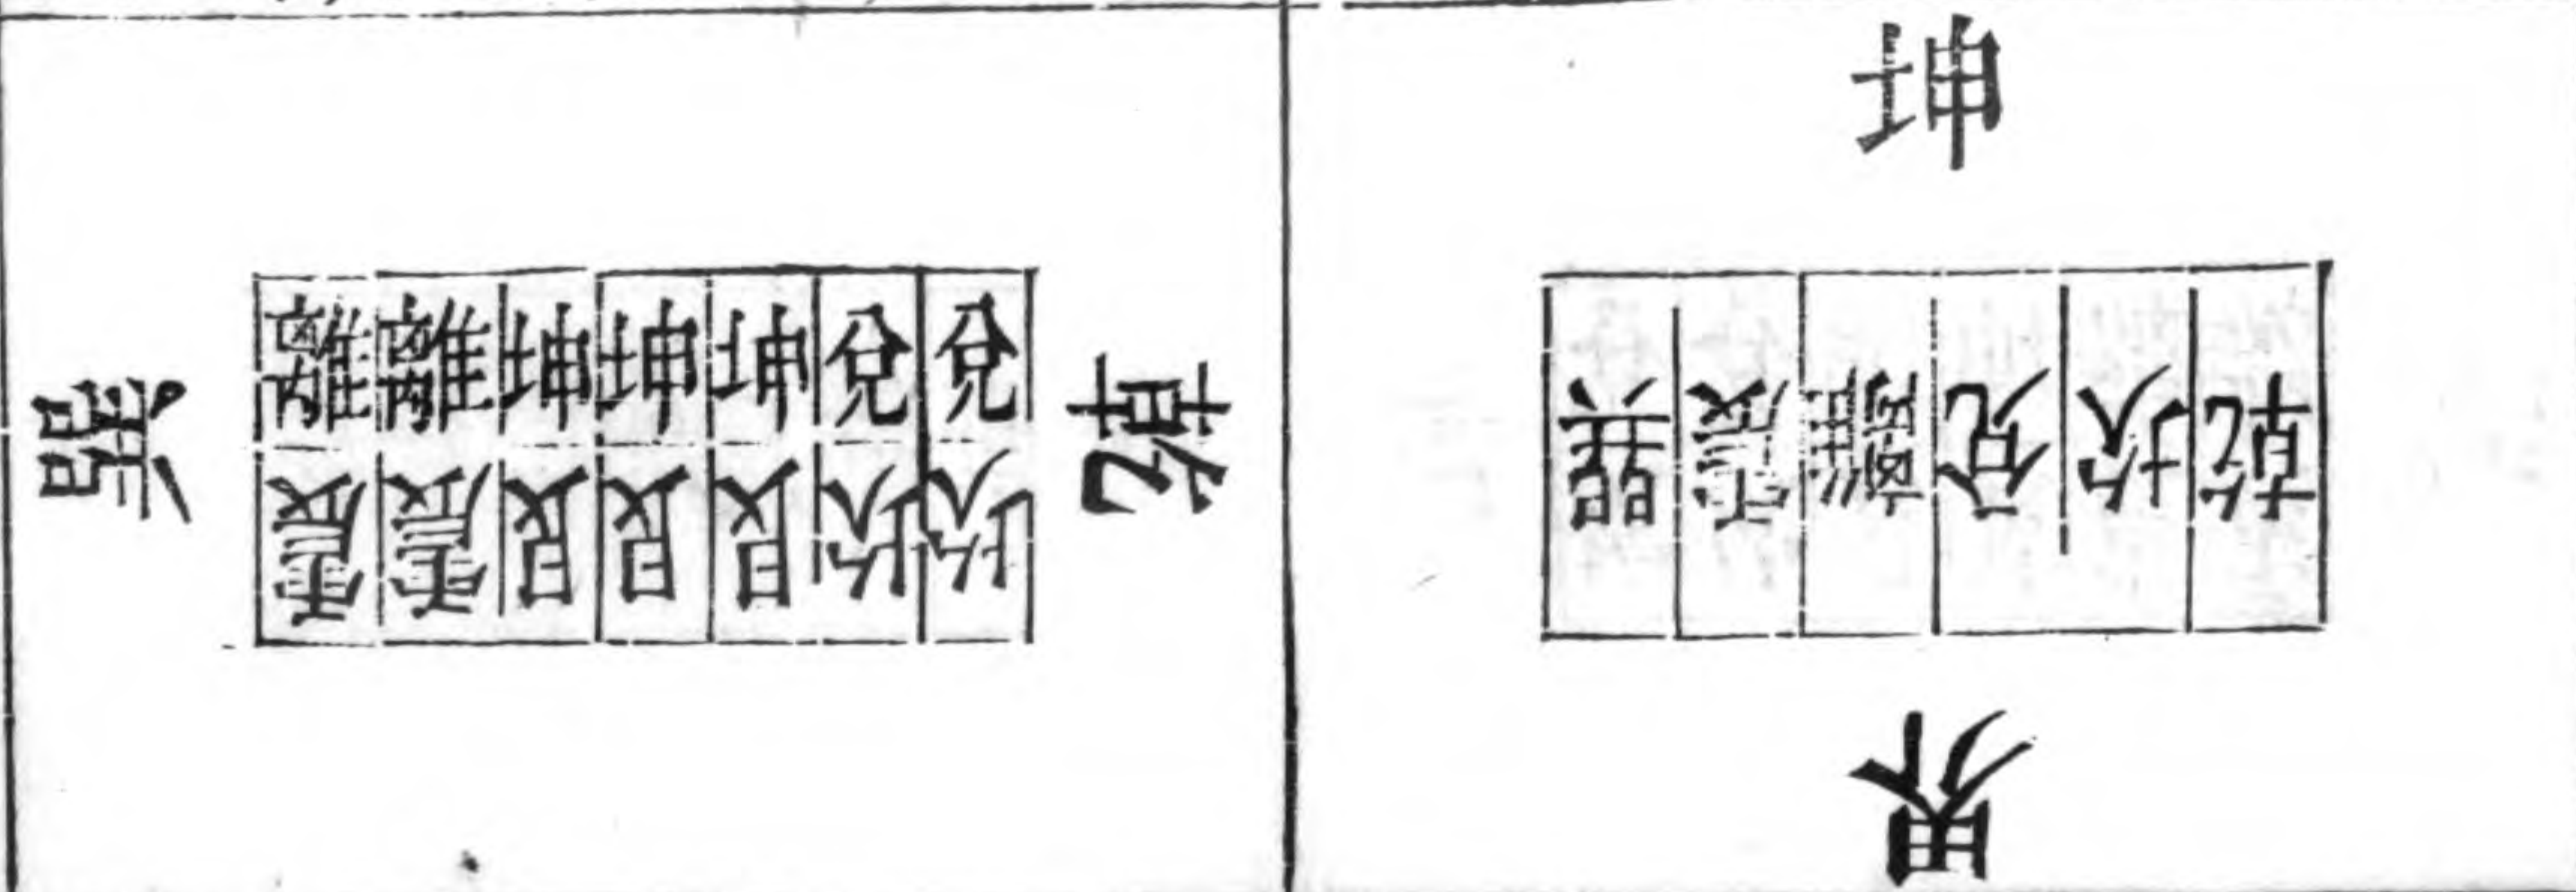 坤
乾
坎
兌
離
震
巽
界
乾
兌 兌 坤 坤 坤 離 離
坎 坎 艮 艮 艮 震 震
巽